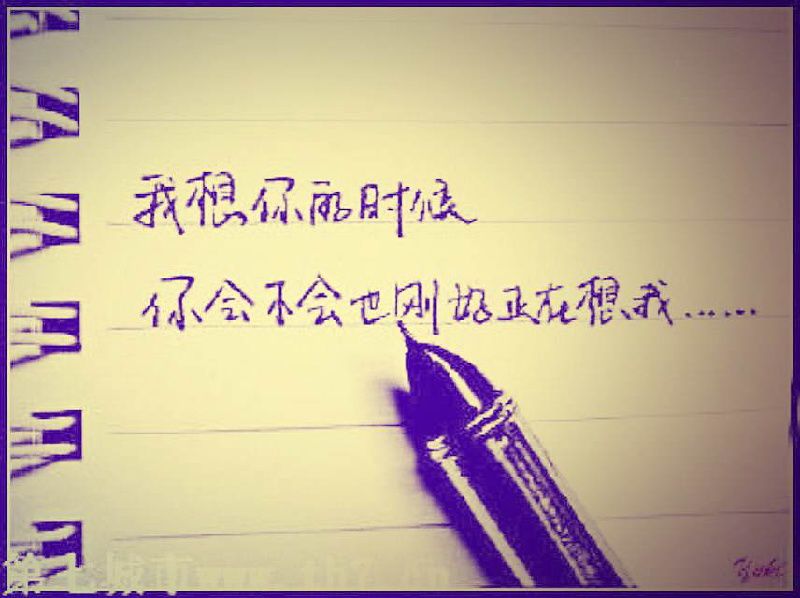 我想你的时候
你会不会也刚好正在想我……
第七城市